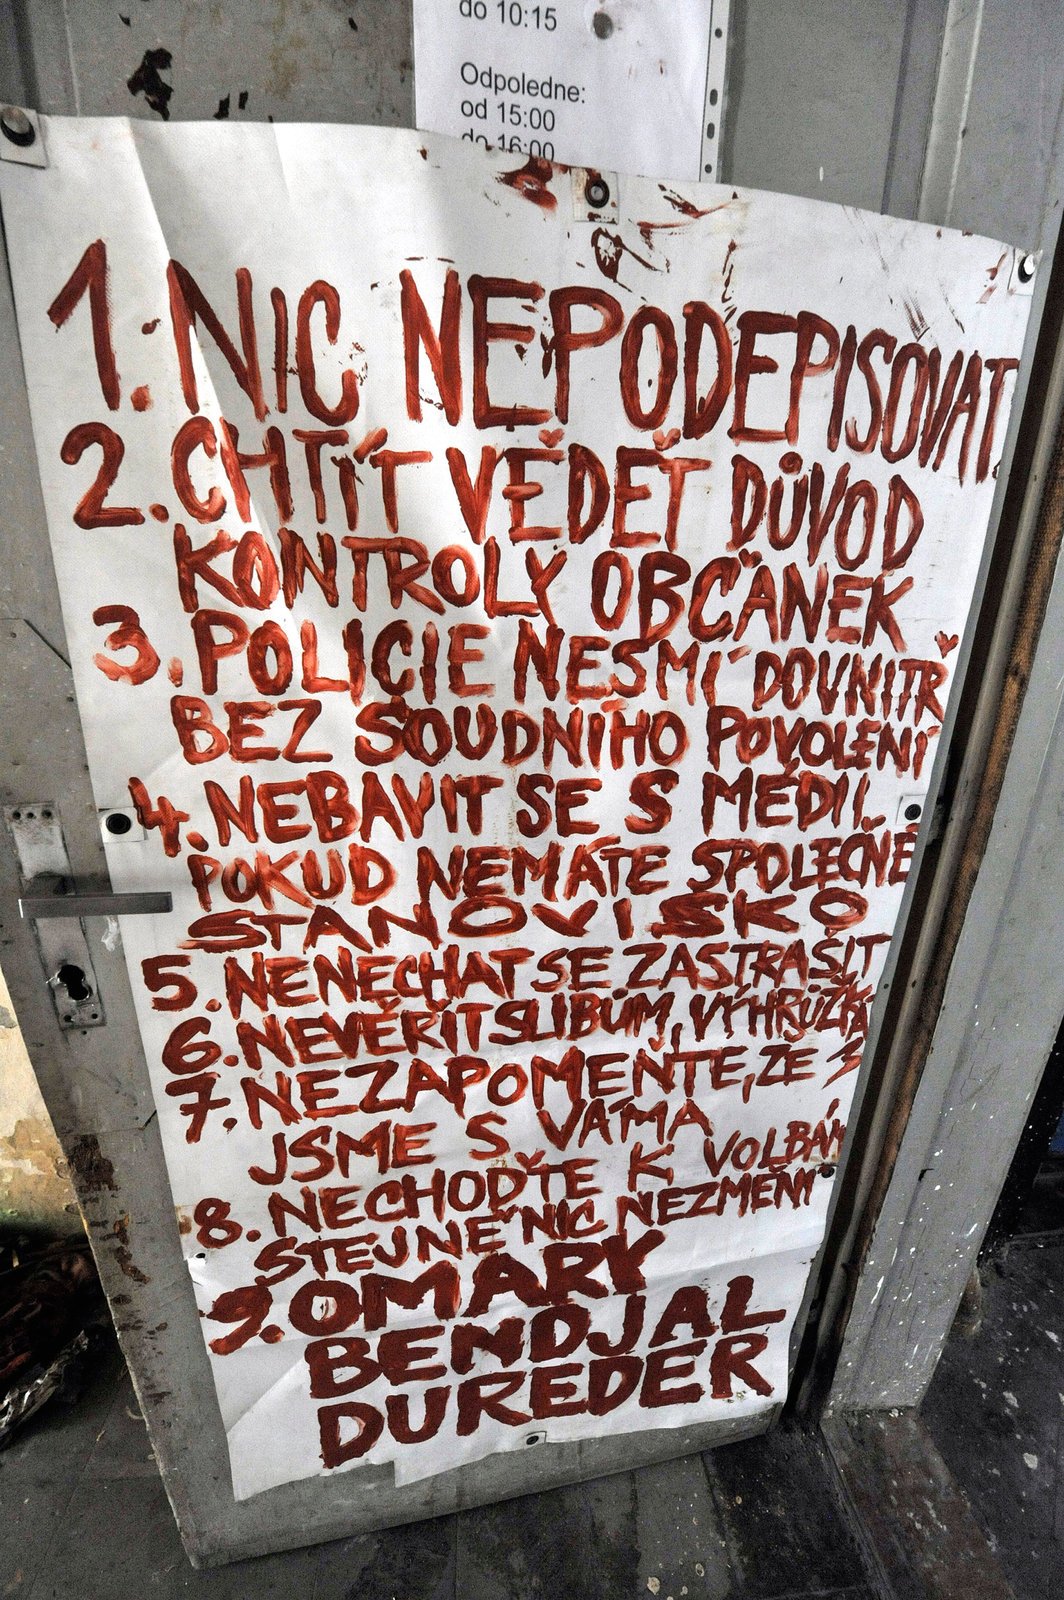 do 10:15
Odpoledne:
od 15:00
do 16:00
1. NIC NEPODEPISOVAT.
2. CHTÍT VĚDĚŤ DŮVOD
KONTROLY OBČANEK
3. POLICIE NESMÍ DOVNITŘ
BEZ SOUDNÍHO POVOLENÍ
4. NEBAVIT SE S MÉDII.
POKUD NEMÁTE SPOLEČNÉ
STANOVISKO
5. NENECHAT SE ZASTRAŠIT
6. NEVĚŘIT SLIBŮM, VÝHRŮŽKÁ
7. NEZAPOMEŇTE, ZE
JSME S VÁMA
8. NECHOĎTE K VOLBÁM
STEJNĚ NIC NEZMĚNÍ
9. OMARY
BENDJAL
DUREDER